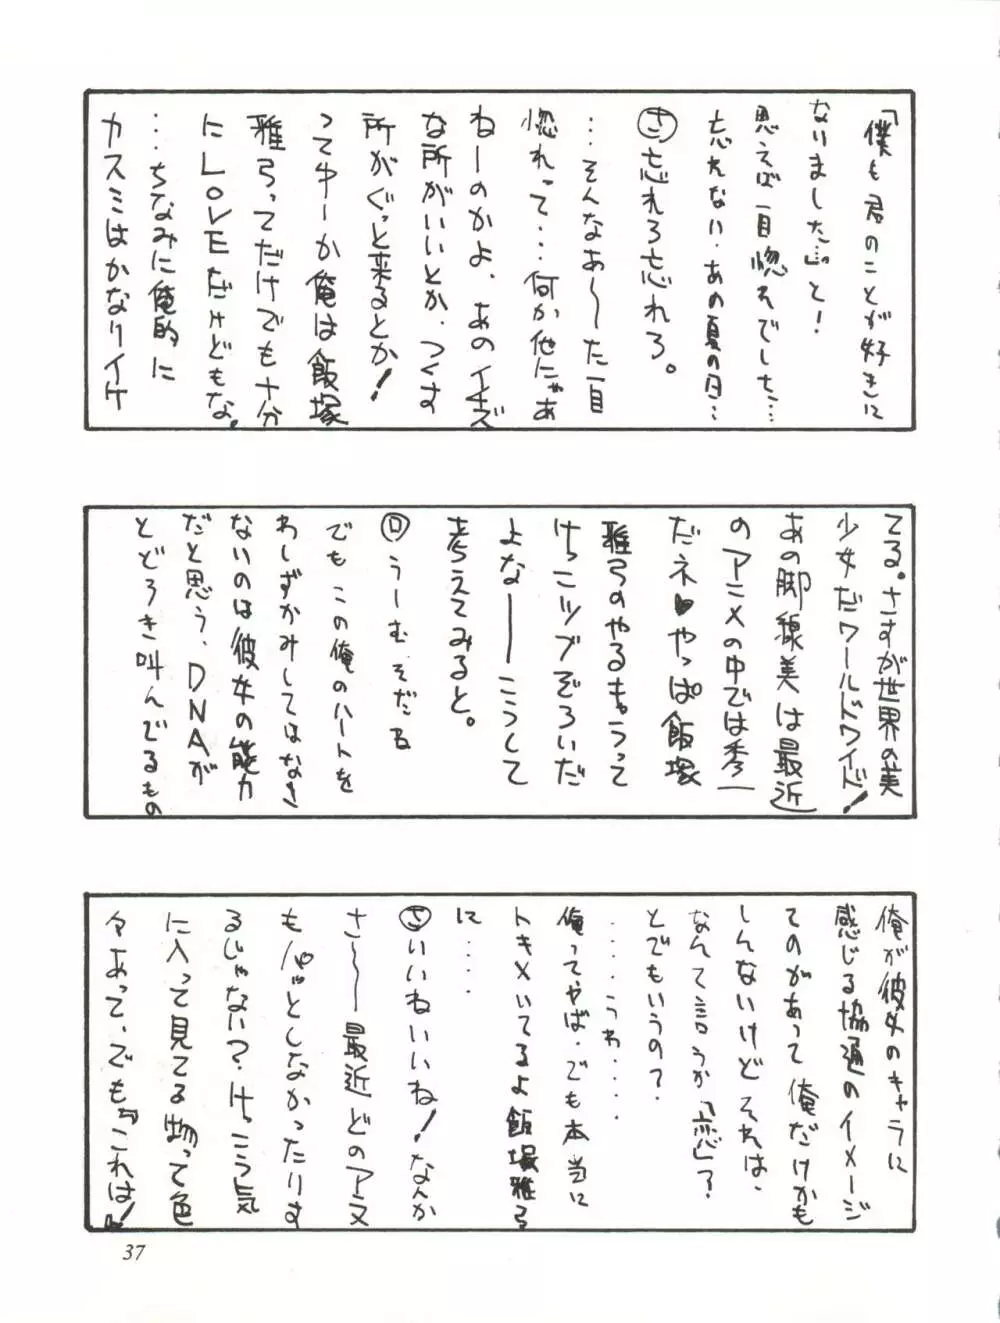 「僕も君のことが好きに
なりました…」と！
思えば一目惚れでした…
忘れない、あの夏の日…
㋚忘れろ忘れろ。
…そんなあ〜〜た一目
惚れって…何か他にゃあ
ねーのかよ、あのイキズ
な所がいいとか、つくす
所がぐっと来るとか！
って ーか俺は飯塚
雅弓ってだけでも十分
にLOVEだけどもな。
…ちなみに俺的に
カスミはかなりイケ
てる。さすが世界の美
少女だワールドワイド！
あの脚線美は最近
のアニメの中では秀一
だネ♥やっぱ飯塚
雅弓のやるもうって
けっこツブぞろいだ
よなーーこうして
考えてみると。
㋺うーむ、そだね
でもこの俺のハートを
わしずかみしてはなさ
ないのは彼女の能力
だと思う、DNAが
とどろき叫んでるもの
俺が彼女のキャラに
感じる協通のイメージ
てのがあって俺だけかも
しんないけどそれは、
なんて言うか「恋」？
とでもいうの？
‥‥うわ‥‥
俺ってやば、でも本当に
トキメいてるよ飯塚雅弓
に‥‥
㋚いいねいいね！なんか
さ〜〜最近どのアニメ
もパッとしなかったりす
るじゃない？けっこう気
に入って見てる物って色
々あって、でも『これは！』